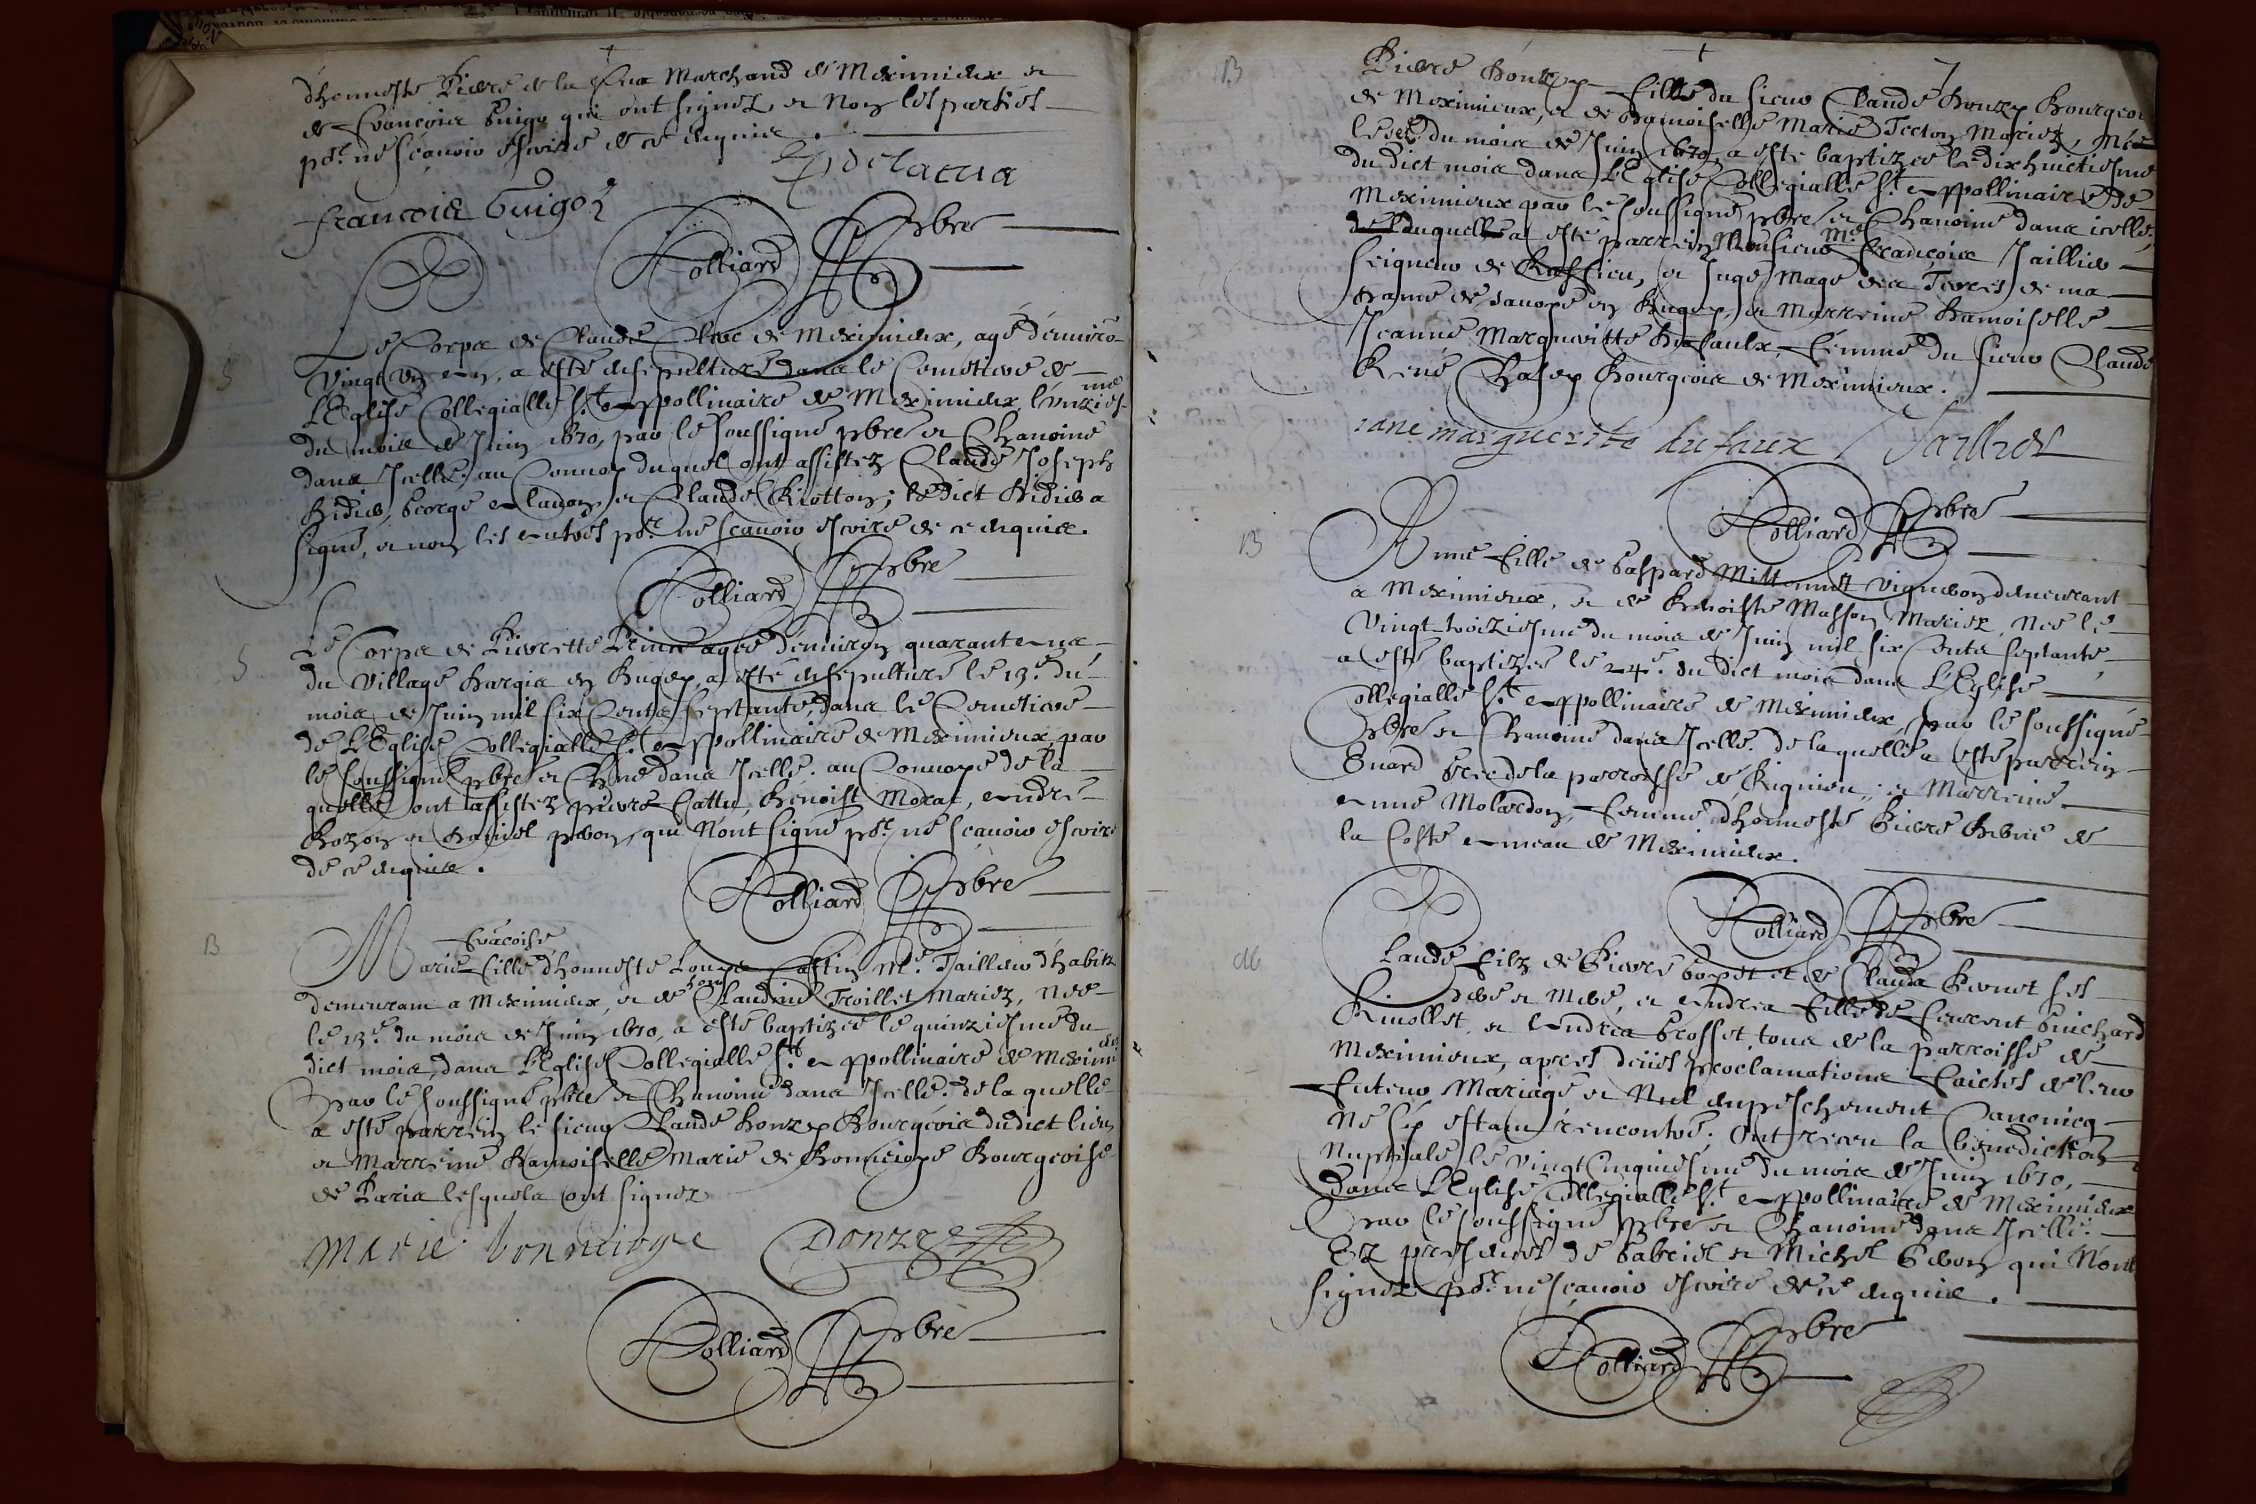 d'honneste Pierre de la Crua Marchand de Meximieux et
de Francois Guigo qui ont signez et Non les parties
pñt ne scavoir escrire de ce enquis.
P delacrua
francois Guigo
Rolliard pbre
Le Corps de Claude Clerc de Meximieux, agé d'environ
Vingt un an, a esté ensepulturé dans le Cemetiere de
L'Eglise Collegialle St Appollinaire de Meximieux l'unziesme
du mois de Juin 1670, par le soussigné pbre et Chanoine
dans Icelle; au Convoy duquel ont assistez Claude Joseph
Didier, George et Claude; ledict Didier a
signé, et non les autres pñt ne scavoir escrire de ce enquis.
Rolliard pbre
Le Corps de Pierrette agée d'environ quarante ans
du Village en Bugey, a esté ensepulturé le 13e. du
mois de Juin mil six Cents septante, dans le Cemetiere
de L'Eglise Collegialle St Appollinaire de Meximieux, par
le soussigné pbre et Chne dans Icelle. au Convoye de la
quelle ont assistez pierre Benoist Andre
et Daniel qui N'ont signé pñt ne scavoir escrire
de ce enquis.
Rolliard pbre
B
fracoise
Marie fille d'honneste Louys Me. Tailleur d'habitz
demeurant a Meximieux, et de Claudine Troillet Mariez, Née
le 13e. du mois de Juin 1670, a esté baptizée le quinziesme du
dict mois, dans L'Eglise Collegialle St Appollinaire de Meximieux
par le soussigné pbre et Chanoine dans Icelle. de la quelle
a esté parrein le sieur Claude Donzey Bourgeois dudict lieu
et Marreine Damoiselle Marie de Bonneioye Bourgeoise
de Paris lesquels ont signez
marie bonneioye Donzey
Rolliard pbre
7
B
Pierre Donzey fille du sieur Claude Donzey Bourgeois
de Meximieux, et de Damoiselle Marie Mariez, Née
le du mois de Juin 1670, a esté baptizée le dixhuictiesme
du dict mois dans L'Eglise Collegialle St Appollinaire de
Meximieux par le soussigné pbre et Chanoine dans icelle,
duquel a esté parrein Monsieur Me Francois Jaillier
seigneur de et Juge Mage des Terres de ma
dame de savoye en Bugey, et Marreine Damoiselle
Jeanne Margueritte Dufaulx, femme du sieur Claude
René Bourgeois de Meximieux.
iane marguerite dufaux Jaillier
Rolliard pbre
B
Anne fille de Gaspard Vigneron demeurant
a Meximieux, et de Benoiste Masson Mariez, Née le
Vingt troiziesme du mois de Juin mil six Cents septante,
a esté baptizée le 24e. du dict mois dans L'Eglise
Collegialle St Appollinaire de Meximieux, par le soussigné
pbre et Chanoine dans Icelle. de laquelle a esté parrein
de la parroisse de et Marreine
Anne Molardon, femme d'honneste Pierre de
la Coste de Meximieux.
Rolliard pbre
Claude filz de Pierre et de Clauda Pernet ses
pere et Mere, et Andrea fille de Laurent Guichard
et Andrea Grosset, tous de la parroisse de
Meximieux, apres deües proclamations faictes de leur
futeur Mariage et Nul enpeschement Canonicq
ne s'y estant rencontré; Ont receu la benediction
Nuptiale le Vingt Cinquiesme du mois de Juin 1670,
dans L'Eglise Collegialle St Appollinaire de Meximieux
par le soussigné pbre et Chanoine dans Icelle.
Ez presences de Gabriel et Michel qui N'ont
signez pñt ne scavoir escrire de ce enquis.
Rolliard pbre